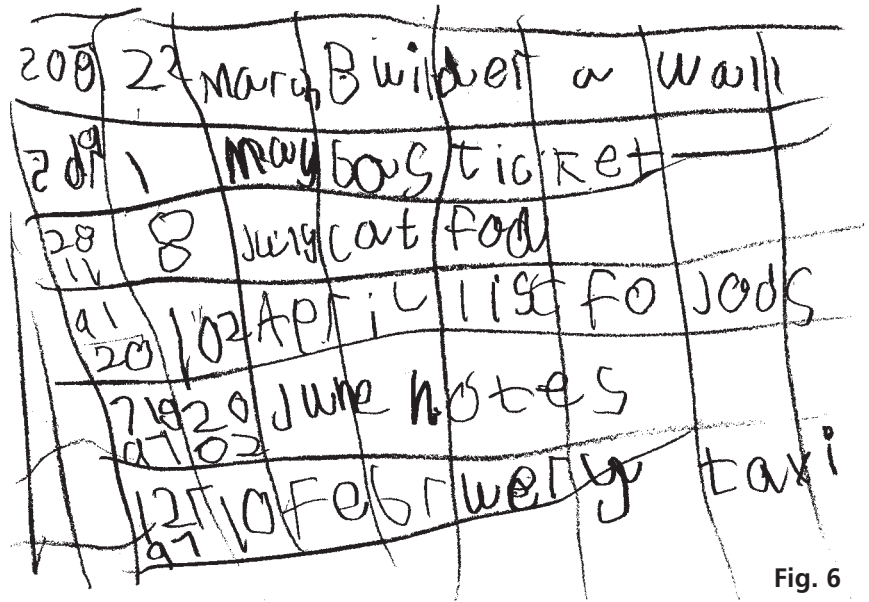 208 22 March Builder a wall
1 May bus ticket
28 8 July cat food
11
91 102 April list fo Jods
20
71920 June notes
97 02
12 10 Februery taxi
97
Fig. 6